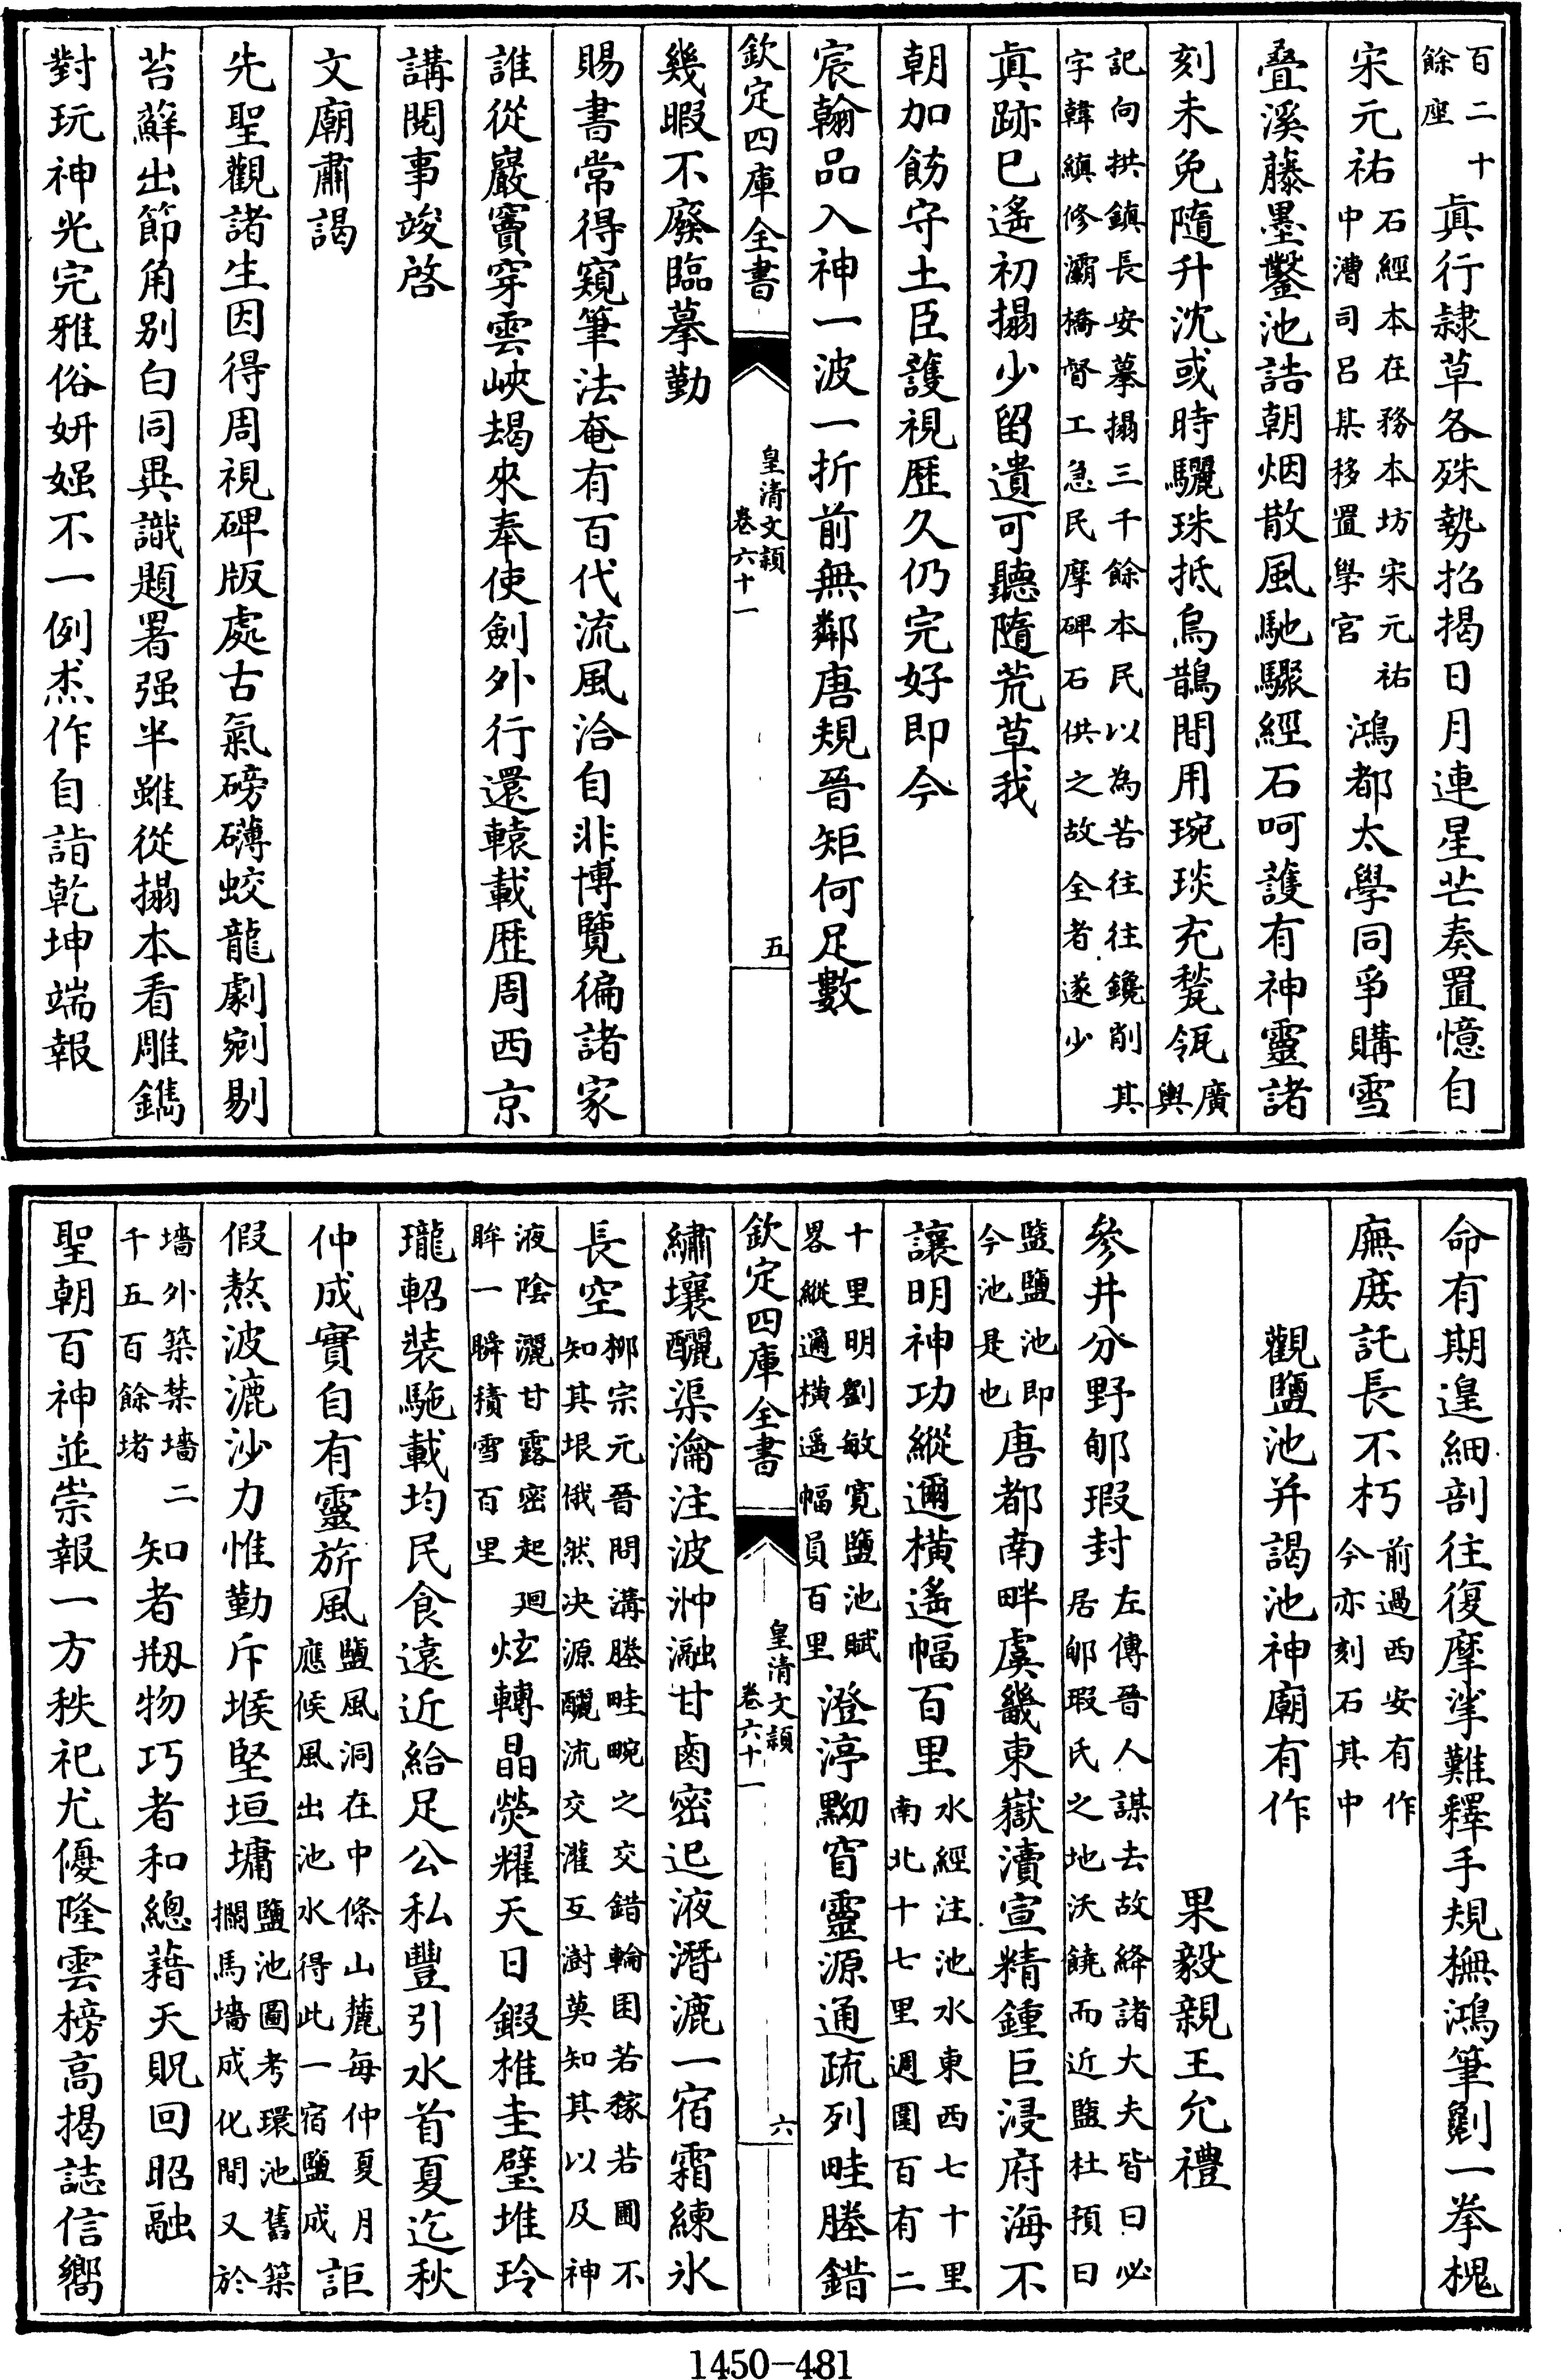 百二十餘座真行隷草各殊勢招揭日月連星芒奏置憶自
宋元祐石經本在務本坊宋元祐中漕司吕某移置學宫鴻都太學同爭購雪
叠溪藤墨鑿池詰朝烟散風馳驟經石呵護有神靈諸
刻未免隨升沈或時驪珠抵烏鵲間用琬琰充甃瓴廣輿
記向拱鎮長安摹搨三千餘本民以為苦往往鑱削其字韓縝修灞橋督工急民摩碑石供之故全者遂少
真跡已遙初搨少留遺可聽隨荒草我
朝加飭守土臣護視歴久仍完好即今
宸翰品入神一波一折前無鄰唐規晉矩何足數
欽定四庫全書
皇清文穎
卷六十一
五
幾暇不廢臨摹勤
賜書常得窺筆法奄有百代流風洽自非博覽徧諸家
誰從巖竇穿雲峽朅來奉使劍外行還轅載歴周西京
講閱事竣啓
文廟肅謁
先聖觀諸生因得周視碑版處古氣磅礴蛟龍劇剜剔
苔蘚出節角别白同異識題署强半雖從搨本看雕鐫
對玩神光完雅俗妍媸不一例㤗作自詣乾坤端報
命有期遑細剖往復摩挲難釋手規橅鴻筆劖一拳槐
廡庻託長不朽前過西安有作今亦刻石其中
觀鹽池并謁池神廟有作
果毅親王允禮
參井分野郇瑕封左傳晉人謀去故絳諸大夫皆曰必居郇瑕氏之地沃饒而近鹽杜預曰
鹽鹽池即今池是也唐都南畔虞畿東嶽瀆宣精鍾巨浸府海不
讓明神功縱邇橫遙幅百里水經注池水東西七十里南北十七里週圍百有二
十里明劉敏寛鹽池賦畧縱邇橫遥幅員百里澄渟黝窅靈源通疏列畦塍錯
欽定四庫全書
皇清文穎
卷六十一
六
繡壤釃渠瀹注波沖瀜甘鹵密迆液潛漉一宿霜練氷
長空栁宗元晉問溝塍畦畹之交錯輪囷若稼若圃不知其垠俄然决源釃流交灌互澍莫知其以及神
液陰灑甘露密起廻眸一瞬積雪百里炫轉晶熒耀天日鍛椎圭璧堆玲
瓏軺裝馳載均民食遠近給足公私豐引水首夏迄秋
仲成實自有靈旂風鹽風洞在中條山麓每仲夏月應候風出池水得此一宿鹽成詎
假熬波漉沙力惟勤斥堠堅垣墉鹽池圖考環池舊築攔馬墻成化間又於
墻外築禁墻二千五百餘堵知者剏物巧者和總藉天貺回昭融
聖朝百神並崇報一方秩祀尤優隆雲榜高揭誌信嚮
1450-481